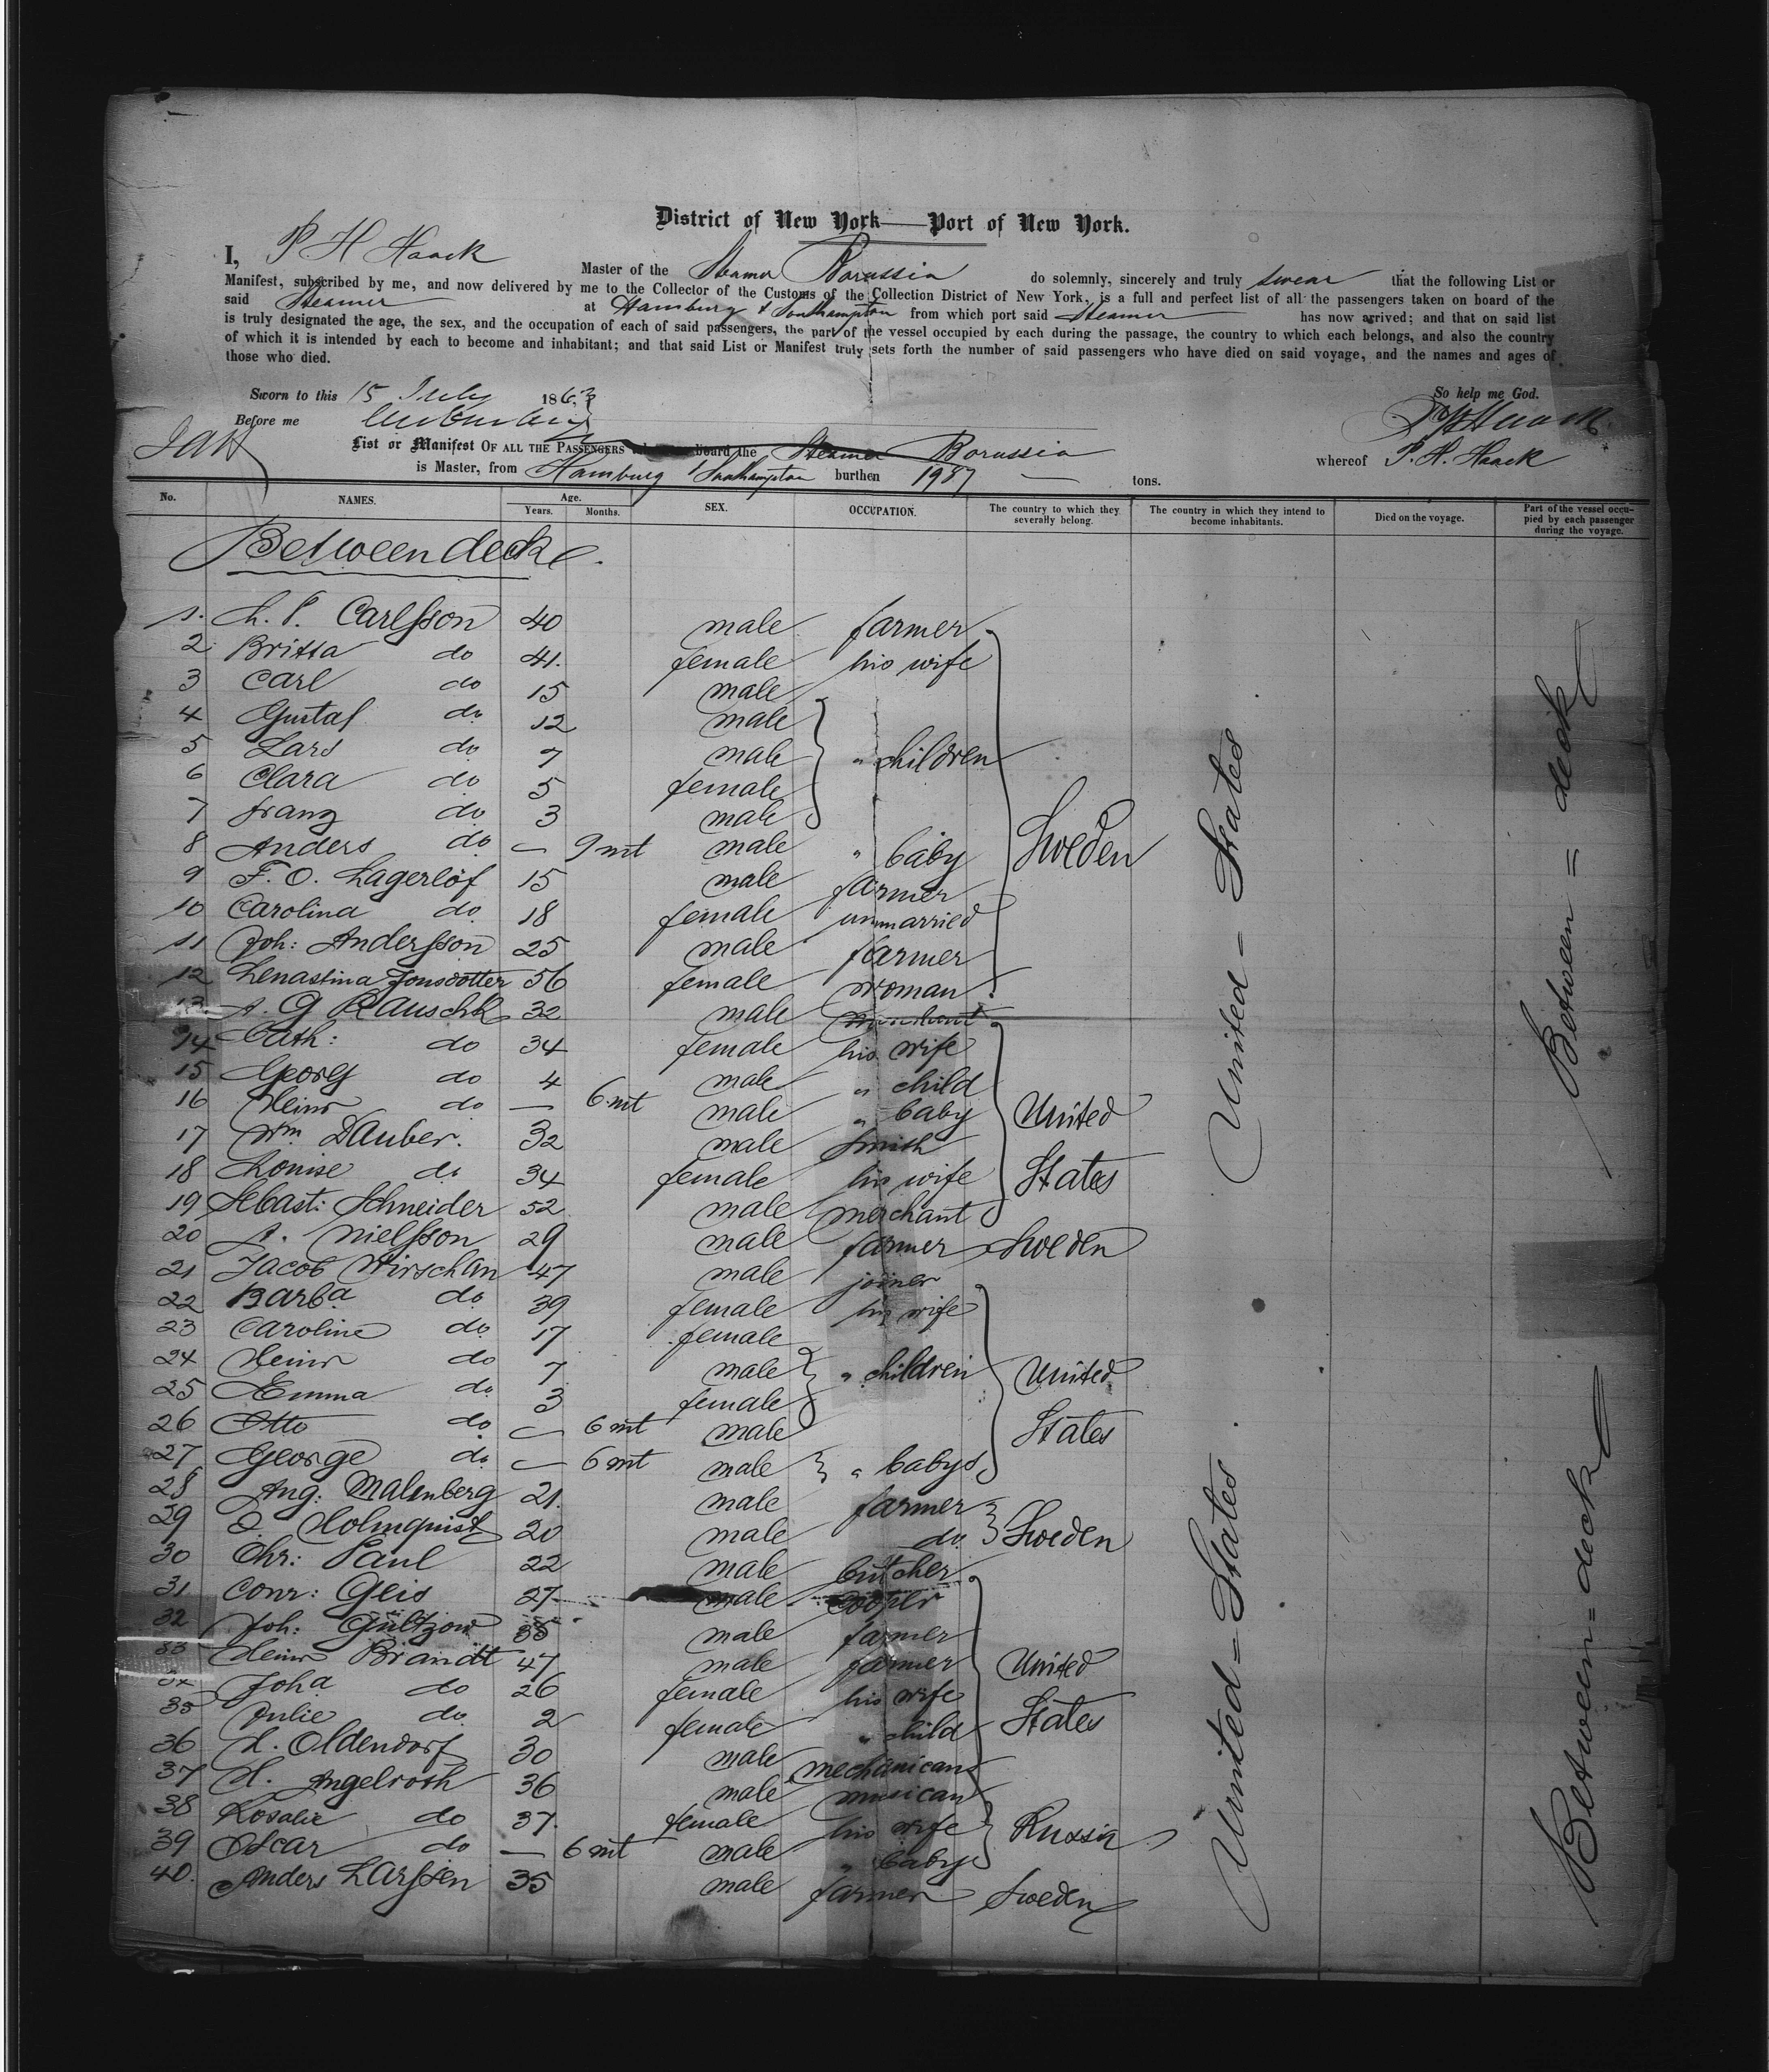 District of New York — Port of New York.
I, P H Haack Master of the Steamer Borussia do solemnly, sincerely and truly swear that the following List or
Manifest, subscribed by me, and now delivered by me to the Collector of the Customs of the Collection District of New York, is a full and perfect list of all the passengers taken on board of the
said Steamer at Hamburg & Southampton from which port said Steamer has now arrived; and that on said list
is truly designated the age, the sex, and the occupation of each of said passengers, the part of the vessel occupied by each during the passage, the country to which each belongs, and also the country
of which it is intended by each to become and inhabitant; and that said List or Manifest truly sets forth the number of said passengers who have died on said voyage, and the names and ages of
those who died.
Sworn to this 15 July 1863 So help me God.
Before me P H Haack
List or Manifest OF ALL THE PASSENGERS board the Steamer Borussia whereof P. H. Haack
is Master, from Hamburg Southampton burthen 1987 tons.
No. NAMES. Age. Years. Months. SEX. OCCUPATION. The country to which they severally belong. The country in which they intend to become inhabitants. Died on the voyage. Part of the vessel occupied by each passenger during the voyage.
Betweendeck.
1. Carlsson 40 male farmer
2 Britta do 41. female his wife
3 Carl do 15 male
4 Gustaf do 12 male
5 Lars do 7 male " children
6 Clara do 5 female
7 Franz do 3 male
8 Anders do — 9 mt male " baby Sweden
9 F. O. Lagerlöf 15 male farmer
10 Carolina do 18 female unmarried
11 Joh: Andersson 25 male farmer
12 Lenastina Jonsdotter 56 female woman
13. A. G Rauschk 32 male merchant
14 Cath: do 34 female his wife
15 Georg do 4 male " child
16 Heinr do — 6 mt male " baby United
17 Wm Dauber. 32 male smith
18 Louise do 34 female his wife States
19 Sebast: Schneider 52 male merchant
20 A. Nielsson 29 male farmer Sweden
21 Jacob Hirschan 47 male joiner
22 Barba do 39 female his wife
23 Caroline do 17 female
24 Heinr do 7 male " children United
25 Emma do 3 female
26 Otto do — 6 mt male States
27 George do — 6 mt male " babys
28 Aug: Malmberg 21. male farmer
29 Holmquist 20 male do Sweden
30 Chr: Paul 22 male butcher
31 Conr: Geis 27 male cooper
32 Joh: Gültzow 38 male farmer
33 Heinr Brandt 47 male farmer United
34 Joha do 26 female his wife
35 Julie do 2 female " child States
36 H. Oldendorf 30 male mechanican
37 H. Angelroth 36 male musican
38 Rosalie do 37. female his wife Russia
39 Oscar do — 6 mt male " baby
40. Anders Larssen 35 male farmer Sweden
United - States
United - States
Between = deck
Between = deck